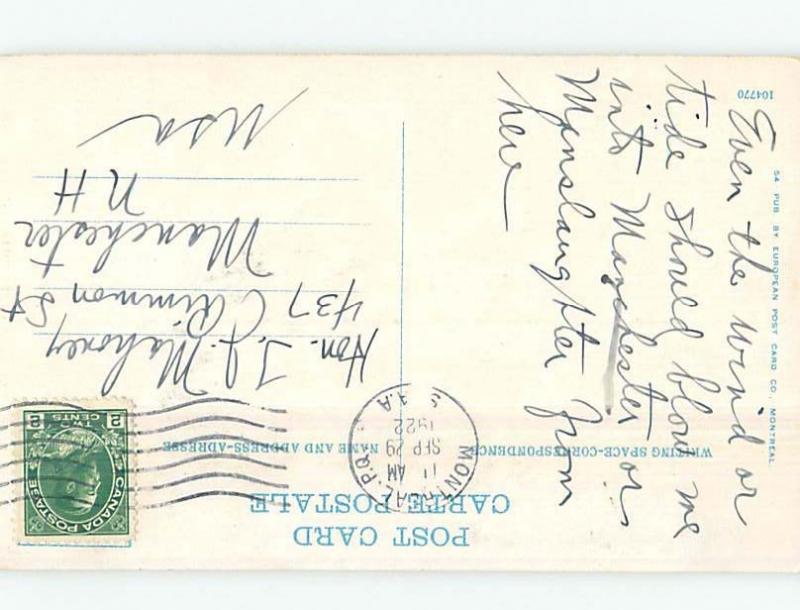 POST CARD
CARTE POSTALE
WRITING SPACE-CORRESPONDENCE
NAME AND ADDRESS-ADRESSE
MONTREAL, P.Q.
11 AM
SEP 29
1922
S.A.A.
CANADA POSTAGE
TWO
CENTS
2 2
Even the wind or
tide should blow me
into Manchester or
Manslaughter from
here
Hon. T. J. Mahoney
437 Rimmon St
Manchester
NH
USA
104770
54 PUB. BY EUROPEAN POST CARD CO., MONTREAL